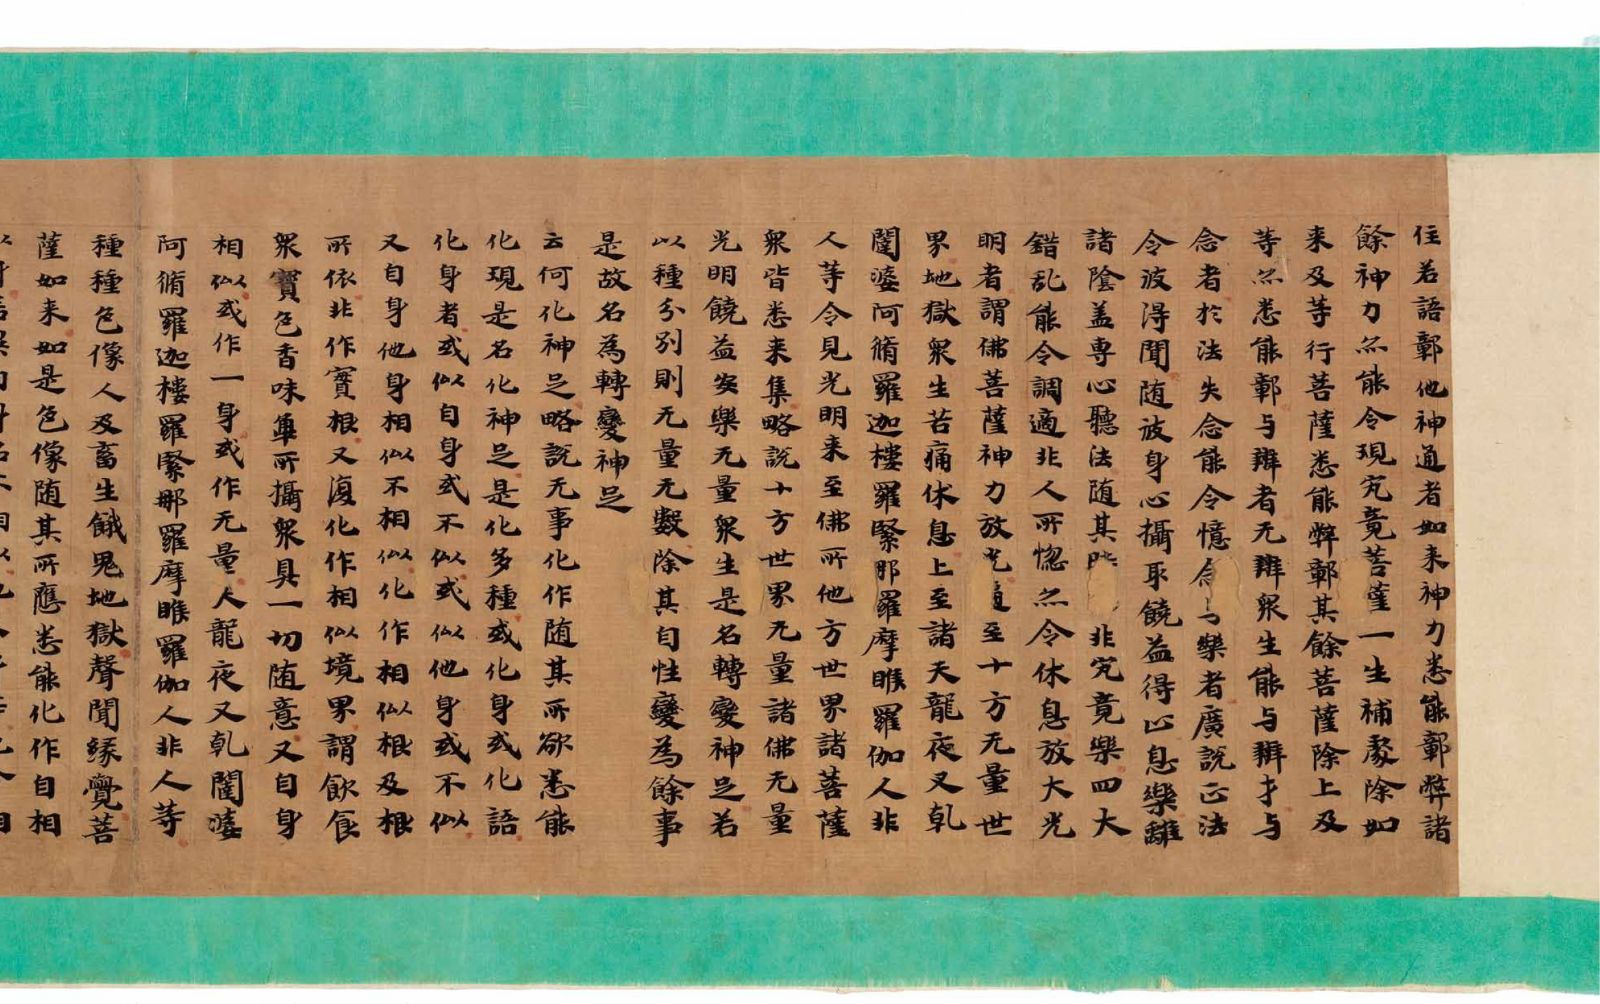 住若語鄣他神通者如来神力悉能鄣弊諸
餘神力亦能令現究竟菩薩一生補處除如
来及等行菩薩悉能弊鄣其餘菩薩除上及
等亦悉能鄣与辯者无辯衆生能与辯才与
念者於法失念能令憶念与樂者廣説正法
令彼得聞随彼身心攝取饒益得止息樂離
諸陰盖専心聽法随其 非究竟樂四大
錯乱能令調適非人所惚亦令休息放大光
明者謂佛菩薩神力放光 至十方无量世
界地獄衆生苦痛休息上至諸天龍夜叉乹
闥婆阿脩羅迦樓羅緊那羅摩睺羅伽人非
人等令見光明来至佛所他方世界諸菩薩
衆皆悉来集略説十方世界无量諸佛无量
光明饒益安樂无量衆生是名轉變神足若
以種分別則无量无數除其自性變為餘事
是故名為轉變神足
云何化神足略説无事化作随其所欲悉能
化現是名化神足是化多種或化身或化語
化身者或似自身或不似或似他身或不似
又自身他身相似不相似化作相似根及根
所依非作實根又復化作相似境界謂飲食
衆寳色香味車所攝衆具一切随意又自身
相似或作一身或作无量人龍夜叉乹闥婆
阿脩羅迦樓羅緊那羅摩睺羅伽人非人等
種種色像人及畜生餓鬼地獄聲聞緣覺菩
薩如来如是色像随其所應悉能化作自相